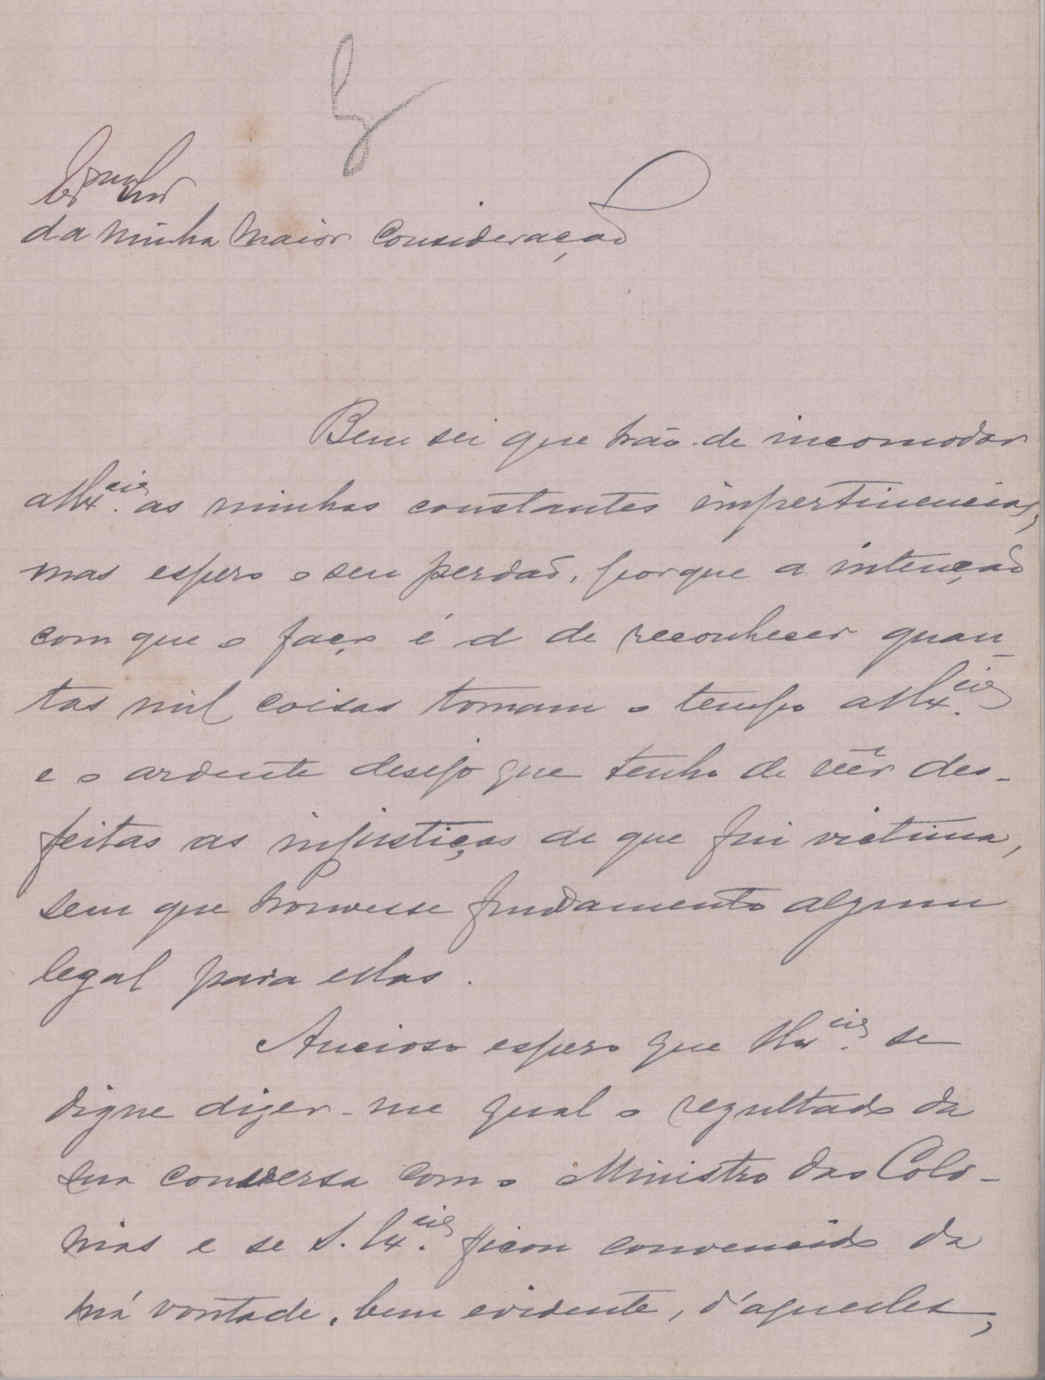 Exmo Snr
da minha maior consideração
Bem sei que hão de incomodar
a V. Ex.cia as minhas constantes impertinencias,
mas espero o seu perdão, porque a intenção
com que o faço é a de reconhecer quan-
tas mil coisas tomam o tempo a V. Ex.cia
e o ardente desejo que tenho de vêr des-
feitas as injustiças de que fui victima,
sem que houvesse fundamento algum
legal para ellas.
Ancioso espero que V. Ex.cia se
digne dizer-me qual o rezultado da
sua conversa com o Ministro das Colo-
nias e se S. Ex.cia ficou convencido da
má vontade, bem evidente, d'aquelles,